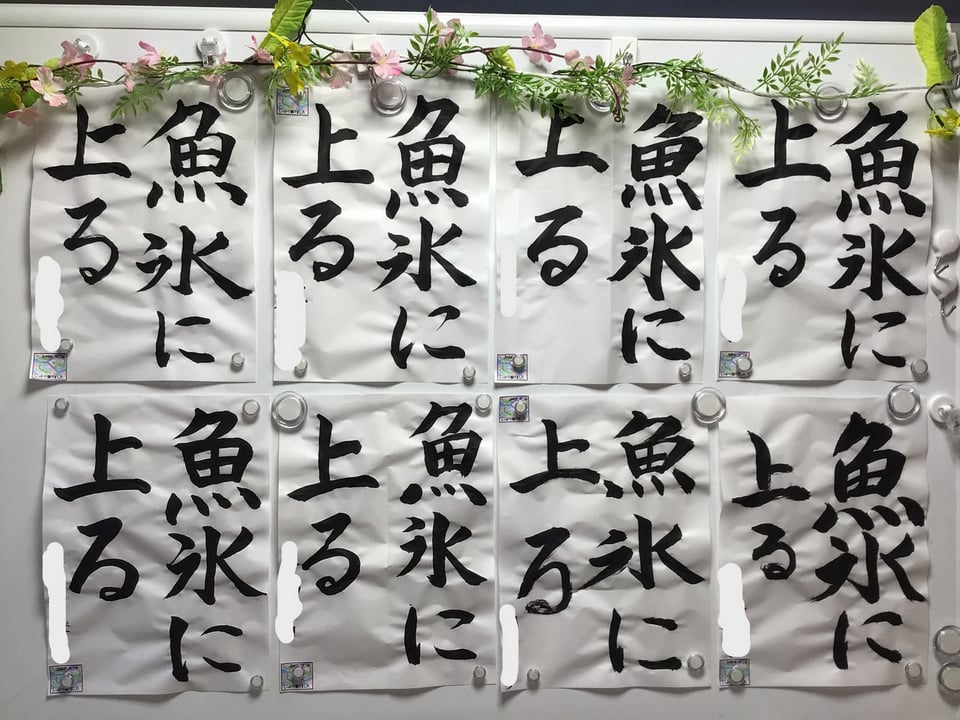 魚氷に
上る
魚氷に
上る
魚氷に
上る
魚氷に
上る
魚氷に
上る
魚氷に
上る
魚氷に
上る
魚氷に
上る